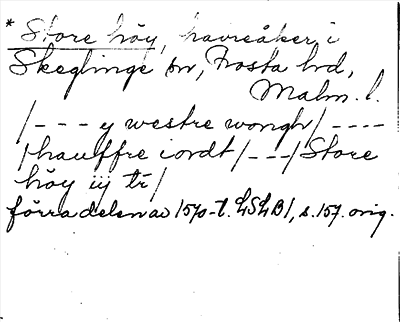 * Store höy, havreåker i
Skeglinge sn, Frosta hd,
Malm. l.
/ - - - y westre wongh/ - - - -
/hauffre iordt/ - - -/Store
höy iij tr/
förra delen av 1570-t. LSLB1, s. 157. orig.